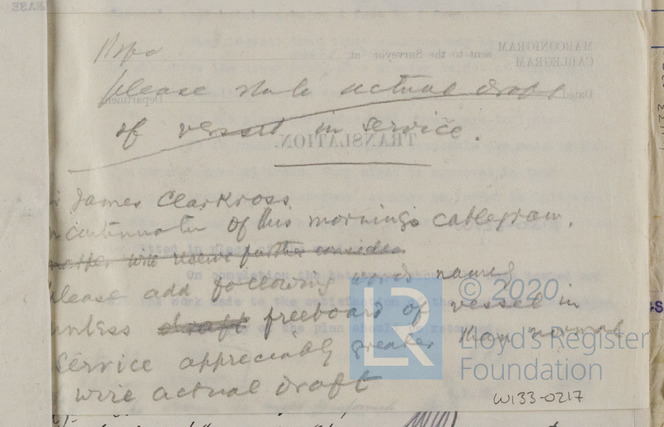 please state actual draft
of vessel in service.
James Clark Ross
continuation of this morning's cablegram.
matter will receive further consideration
please add following words namely
unless draft freeboard of vessel in
service appreciably greater than normal
wire actual draft
MARCONIGRAM
CABLEGRAM
sent to the Surveyor at
Department
TRANSLATION.
© 2020
LR
Lloyd's Register
Foundation
W133-0217